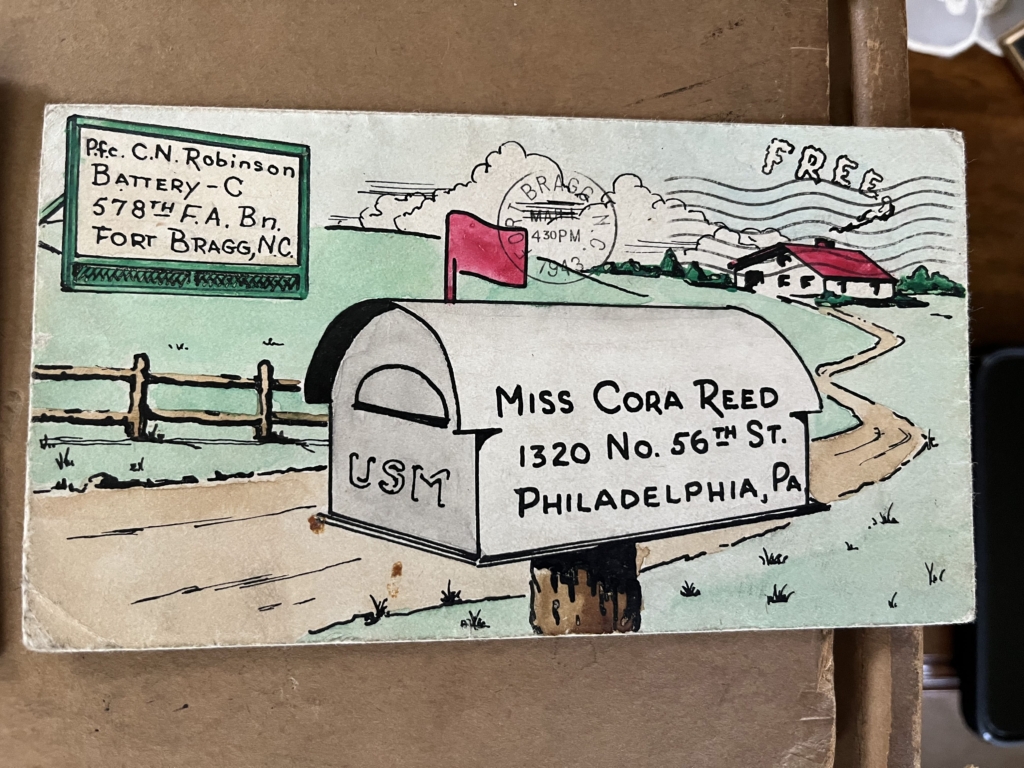 P.f.c. C.N. Robinson
BATTERY - C
578TH F.A. Bn.
FORT BRAGG, N.C.
FREE
FORT BRAGG N.C.
MAR
4 30 PM
1943
MISS CORA REED
1320 No. 56TH ST.
PHILADELPHIA, PA
USM